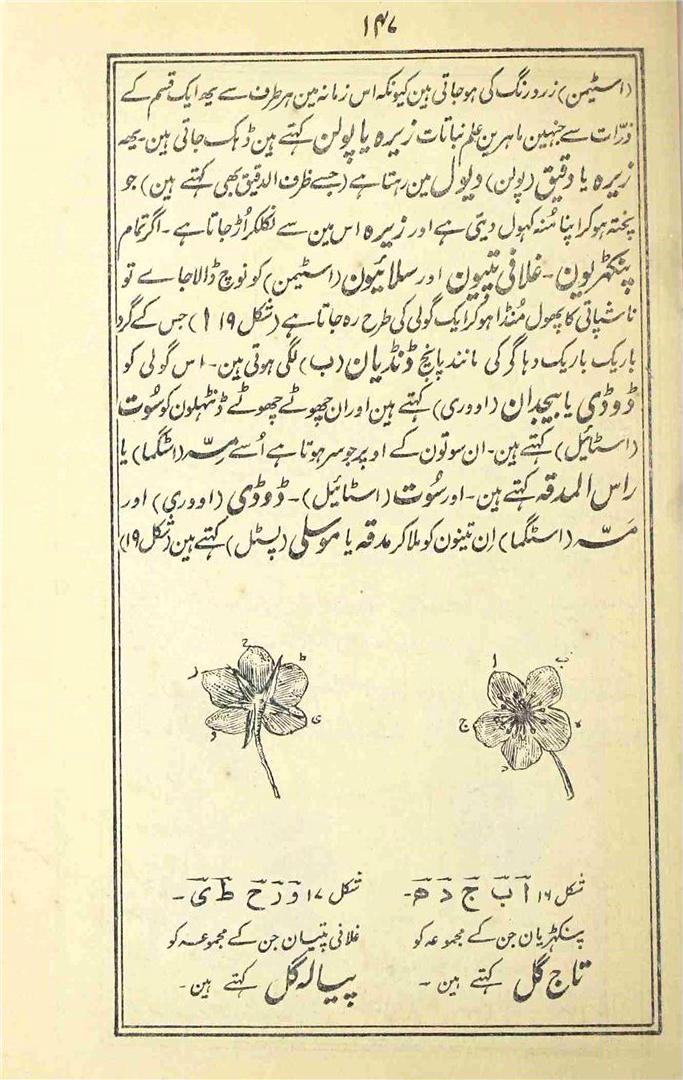 ۱۴۷
(اسٹیمن) زرد رنگ کی ہوجاتی ہین کیونکہ اس زمانہ مین ہر طرف سے یہہ ایک قسم کے
ذرّات سے جنہین ماہرین علم نباتات زیرہ یا پولن کہتے ہین ڈہک جاتی ہین۔ یہہ
زیرہ یا دقیق (پولن) دیول مین رہتا ہے (جسے ظرف الدقیق بھی کہتے ہین) جو
پختہ ہوکر اپنا مُنہ کہول دیتی ہے اور زیرہ اس مین سے نکلکر اُڑجاتا ہے۔ اگر تمام
پنکھڑیون۔ غلافی پتیون اور سلائیون (اسٹیمن) کو نوچ ڈالا جاے تو
ناشپاتی کا پھول مُنڈا ہوکر ایک گولی کی طرح رہ جاتا ہے (شکل ۱۹ ا) جس کے گرد
باریک باریک دہاگر کی مانند پانچ ڈنڈیان (ب) لگی ہوتی ہین۔ اس گولی کو
ڈوڈی یا بیجدان (اووری) کہتے ہین اور ان چھوٹے چھوٹے ڈنٹہلون کو سُوت
(اسٹائیل) کہتے ہین۔ ان سوتون کے اوپر جو سر ہوتا ہے اُسے مِسّہ (اسٹگما) یا
راس المدقہ کہتے ہین۔ اور سُوت (اسٹائیل)۔ ڈوڈی (اووری) اور
مَسّہ (اسٹگما) اِن تینون کو ملا کر مدقہ یا موسلی (پسٹل) کہتے ہین (شکل ۱۹)
ا ب ج د ہ
و ز ح ط ی
شکل ۱۶ ا ب ج د ہ۔
پنکھڑیان جن کے مجموعہ کو
تاج گل کہتے ہین۔
شکل ۱۷ و ز ح ط ی۔
غلافی پتیان جن کے مجموعہ کو
پیالہ گل کہتے ہین۔